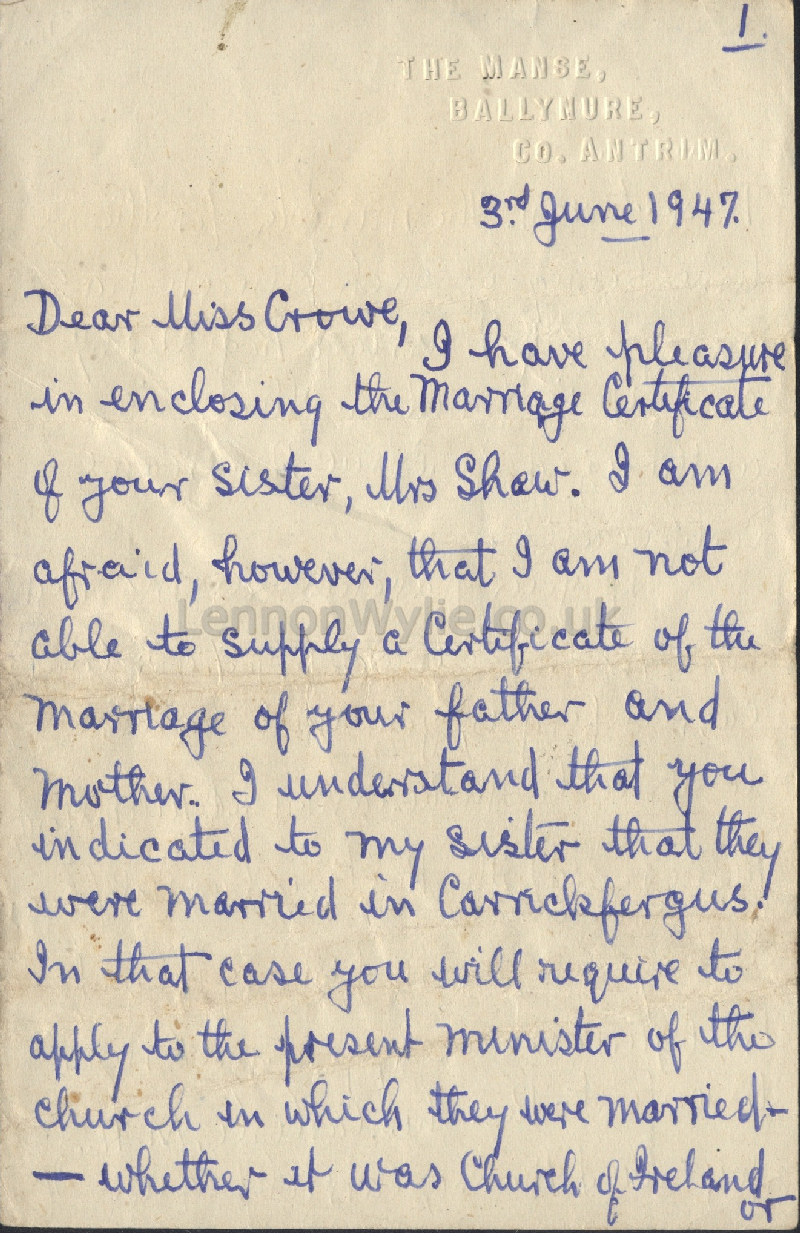 1.
THE MANSE,
BALLYNURE,
CO. ANTRIM.
3rd June 1947.
Dear Miss Crowe,
I have pleasure
in enclosing the Marriage Certificate
of your sister, Mrs Shaw. I am
afraid, however, that I am not
LennonWylie.co.uk
able to supply a Certificate of the
marriage of your father and
mother. I understand that you
indicated to my sister that they
were married in Carrickfergus.
In that case you will require to
apply to the present minister of the
church in which they were married -
— whether it was Church of Ireland
or